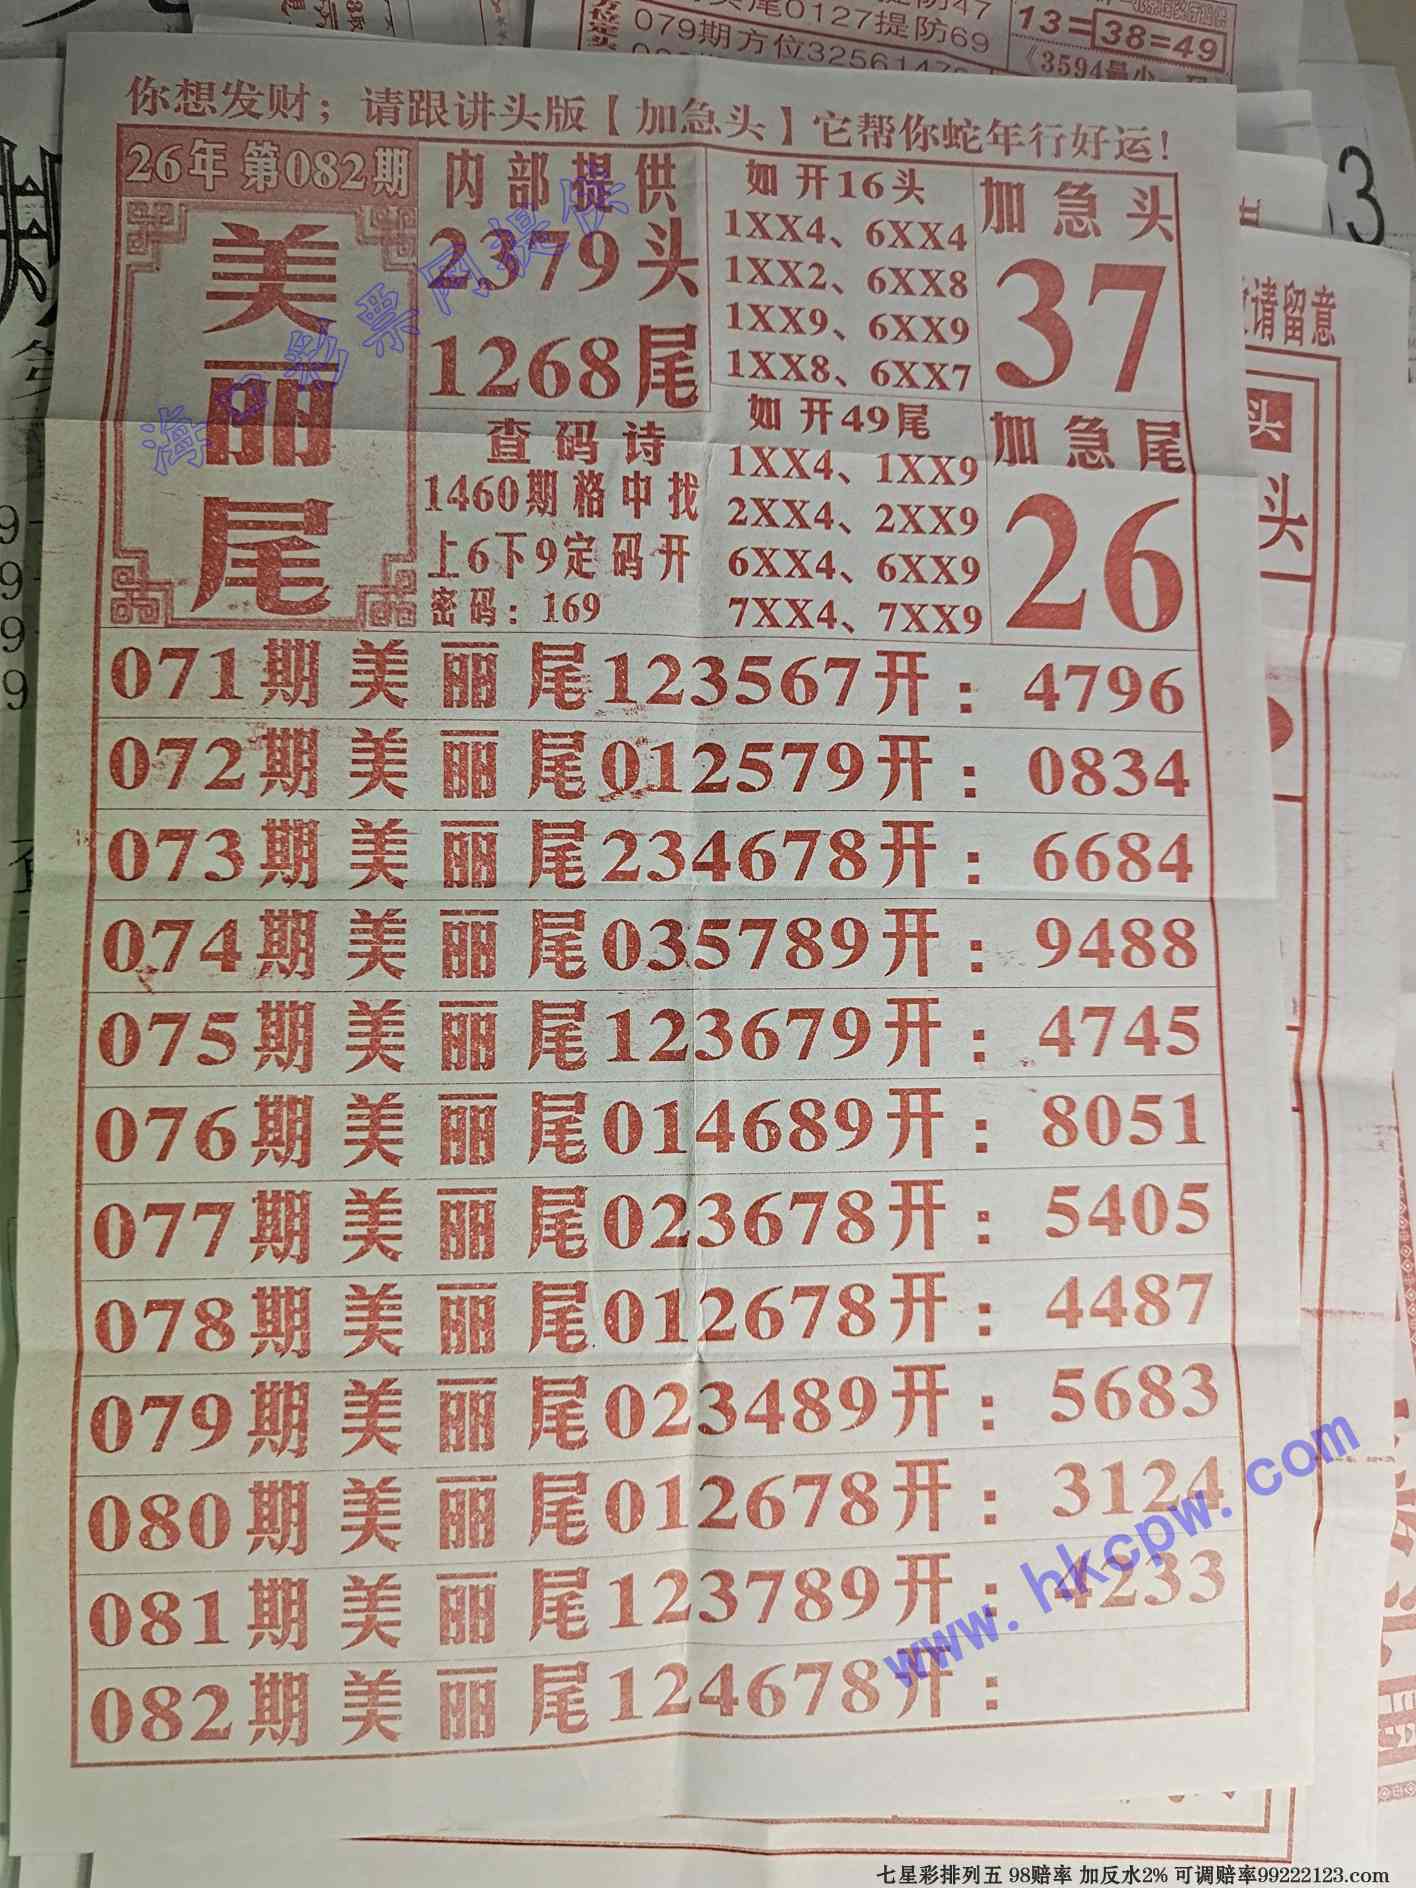 079期方位3256147
13=38=49
《3594最小
你想发财；请跟讲头版【加急头】它帮你蛇年行好运！
26年 第082期
美丽尾
内部提供
2379头
1268尾
查码诗
1460期格中找
上6下9定码开
密码：169
如开16头
1XX4、6XX4
1XX2、6XX8
1XX9、6XX9
1XX8、6XX7
如开49尾
1XX4、1XX9
2XX4、2XX9
6XX4、6XX9
7XX4、7XX9
加急头
37
加急尾
26
071期美丽尾123567开：4796
072期美丽尾012579开：0834
073期美丽尾234678开：6684
074期美丽尾035789开：9488
075期美丽尾123679开：4745
076期美丽尾014689开：8051
077期美丽尾023678开：5405
078期美丽尾012678开：4487
079期美丽尾023489开：5683
080期美丽尾012678开：3124
081期美丽尾123789开：4233
082期美丽尾124678开：
海口彩票网提供
www.hkcpw.com
请留意
头
头
七星彩排列五 98赔率 加反水2% 可调赔率99222123.com